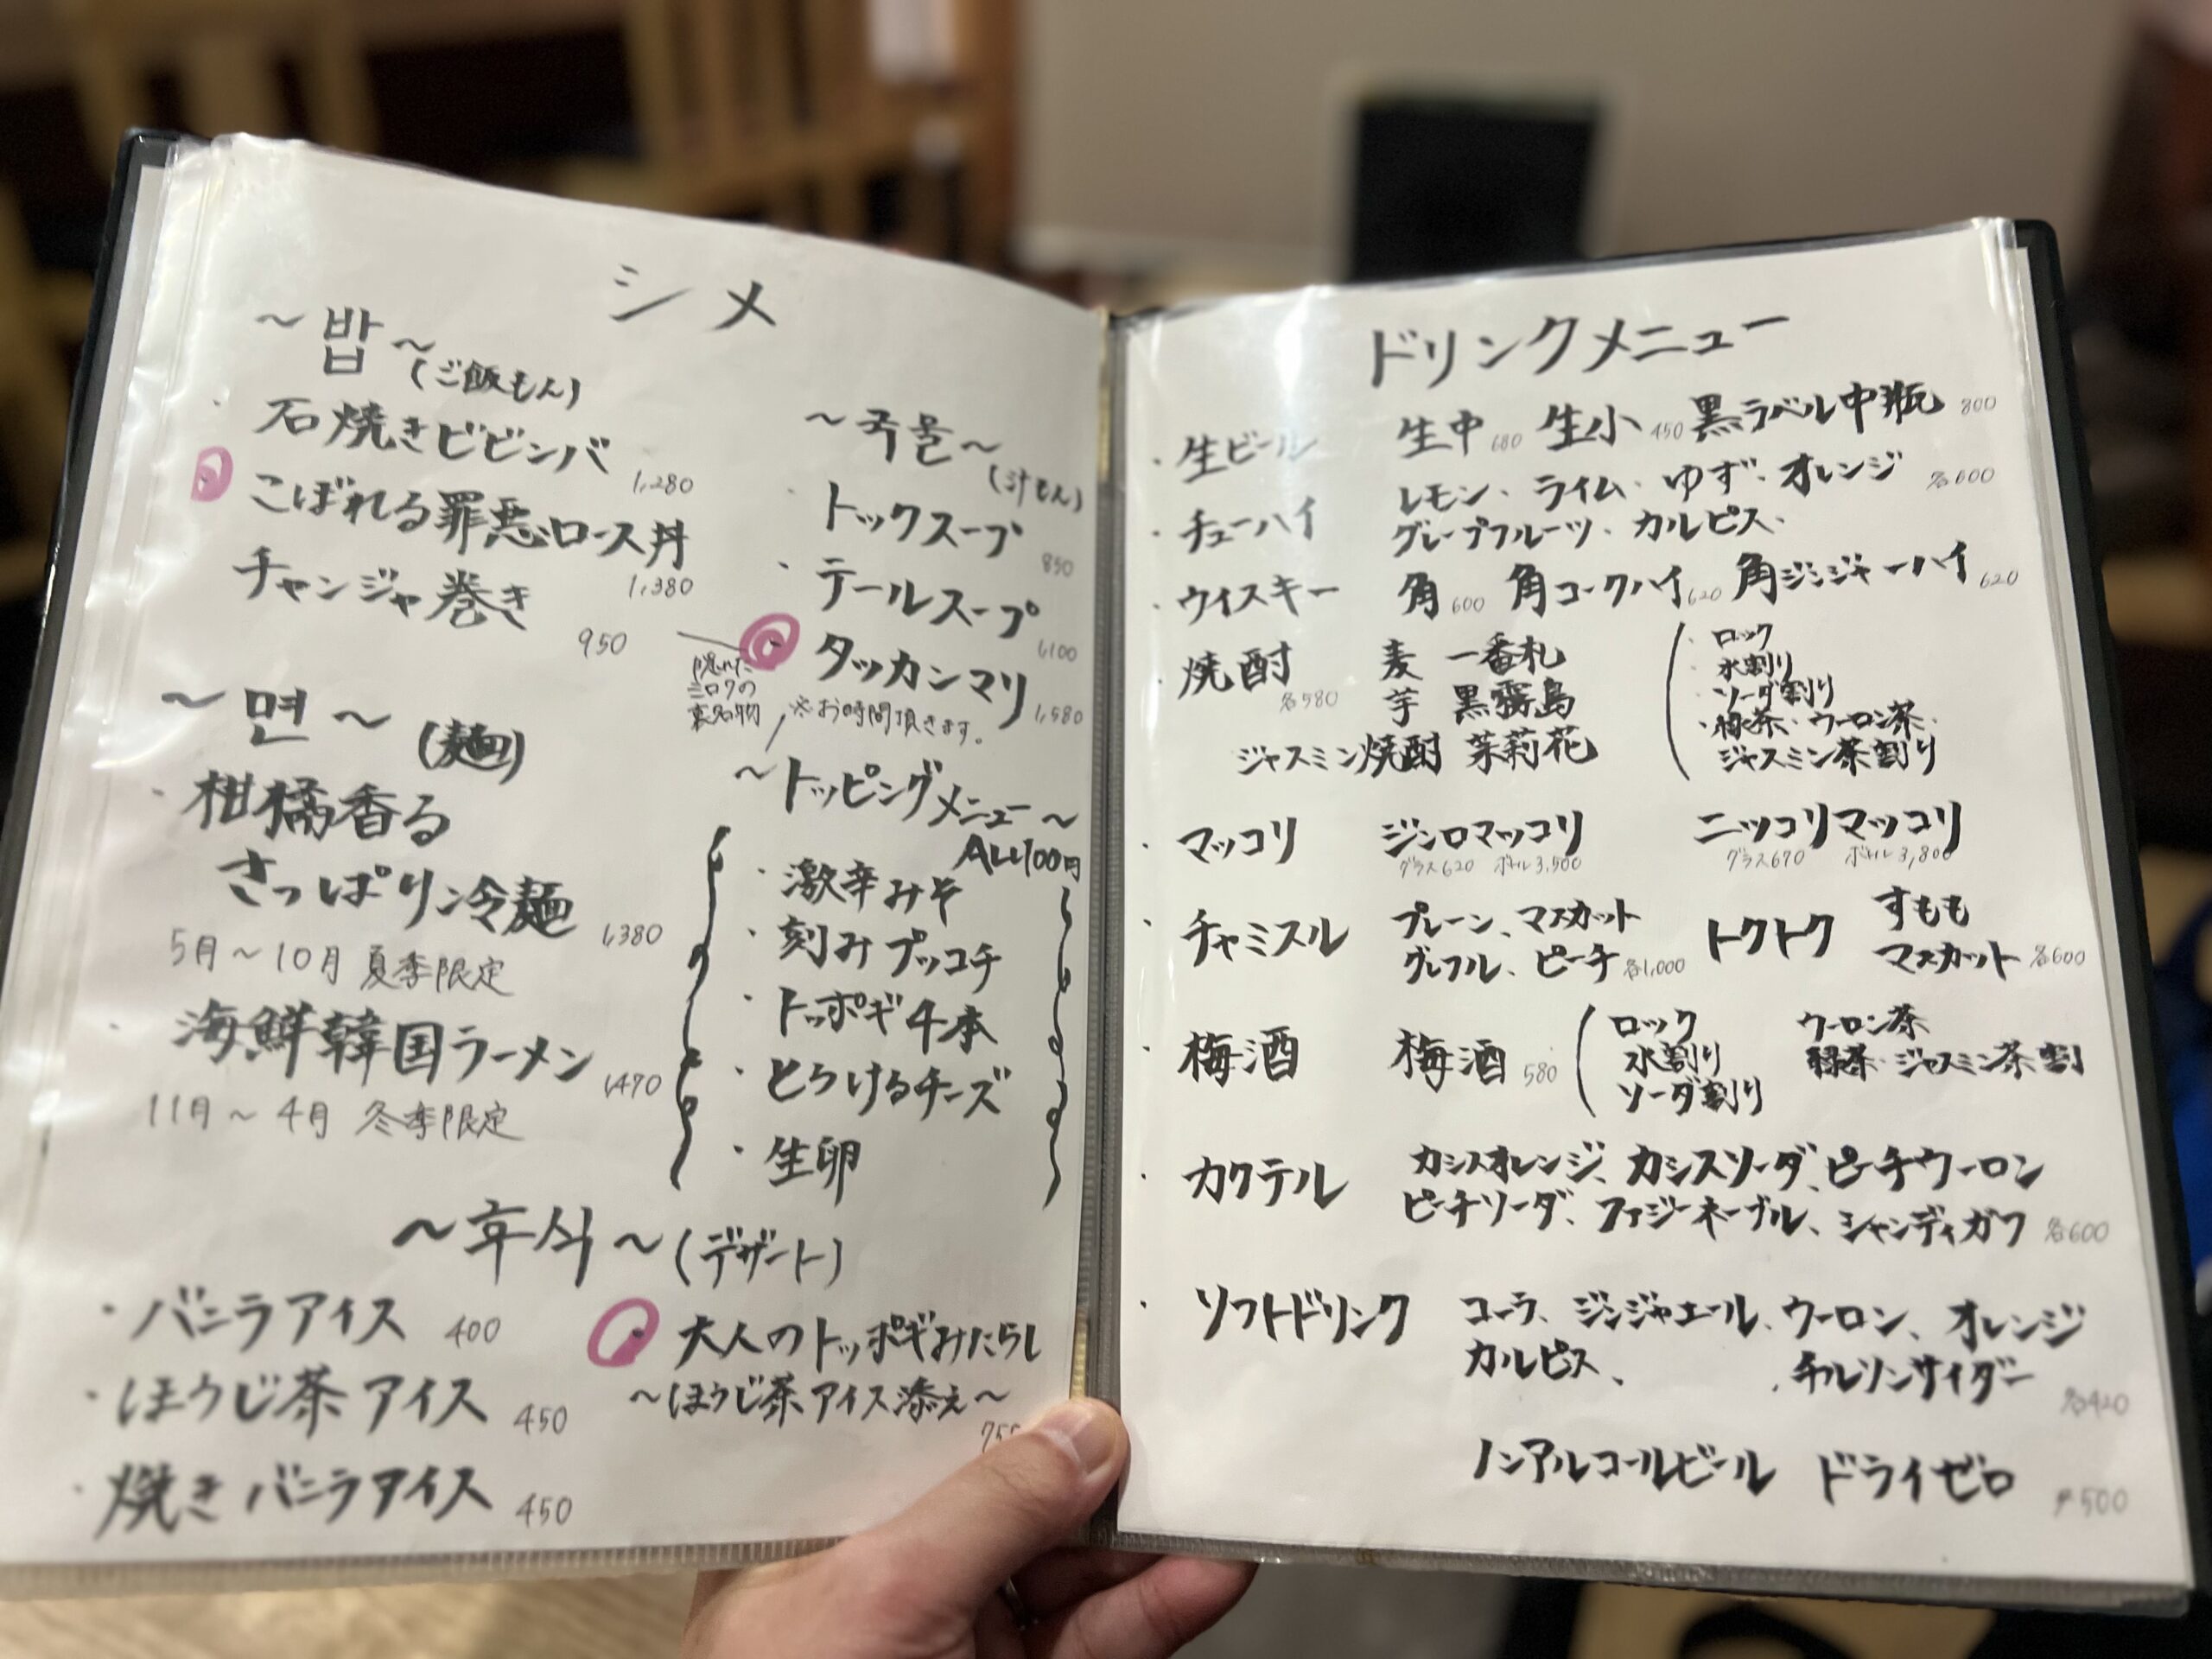 シメ
~ 밥 ~
(ご飯もん)
・石焼きビビンバ 1,280
こぼれる罪悪ロース丼 1,380
チャンジャ巻き 950
~ 면 ~ (麺)
・柑橘香る
さっぱり冷麺 1,380
5月~10月 夏季限定
・海鮮韓国ラーメン 1,470
11月~4月 冬季限定
~국물~
(汁もん)
・トックスープ 850
・テールスープ 1,100
タッカンマリ 1,580
隠れた
ミロクの
裏名物
※お時間頂きます。
~トッピングメニュー~
ALL100円
・激辛みそ
・刻みプッコチ
・トッポギ4本
・とろけるチーズ
・生卵
~후식~(デザート)
・バニラアイス 400
・ほうじ茶アイス 450
・焼きバニラアイス 450
大人のトッポギみたらし
~ほうじ茶アイス添え~
ドリンクメニュー
・生ビール 生中 680 生小 450 黒ラベル中瓶 800
・チューハイ レモン・ライム・ゆず・オレンジ 各600
グレープフルーツ・カルピス・
・ウイスキー 角 600 角コークハイ 620 角ジンジャーハイ 620
・焼酎 各580 麦 一番札
芋 黒霧島
ジャスミン焼酎 茉莉花
・ロック
・水割り
・ソーダ割り
・緑茶・ウーロン茶・
ジャスミン茶割り
・マッコリ ジンロマッコリ ニッコリマッコリ
グラス620 ボトル3,500 グラス670 ボトル3,800
・チャミスル プレーン、マスカット
グレフル、ピーチ 各1,000
トクトク すもも
マスカット 各600
・梅酒 梅酒 580
ロック
水割り
ソーダ割り
ウーロン茶
緑茶・ジャスミン茶割
・カクテル カシスオレンジ、カシスソーダ、ピーチウーロン
ピーチソーダ、ファジーネーブル、シャンディガフ 各600
・ソフトドリンク コーラ、ジンジャエール、ウーロン、オレンジ
カルピス、 チルソンサイダー 各420
ノンアルコールビール ドライゼロ 500